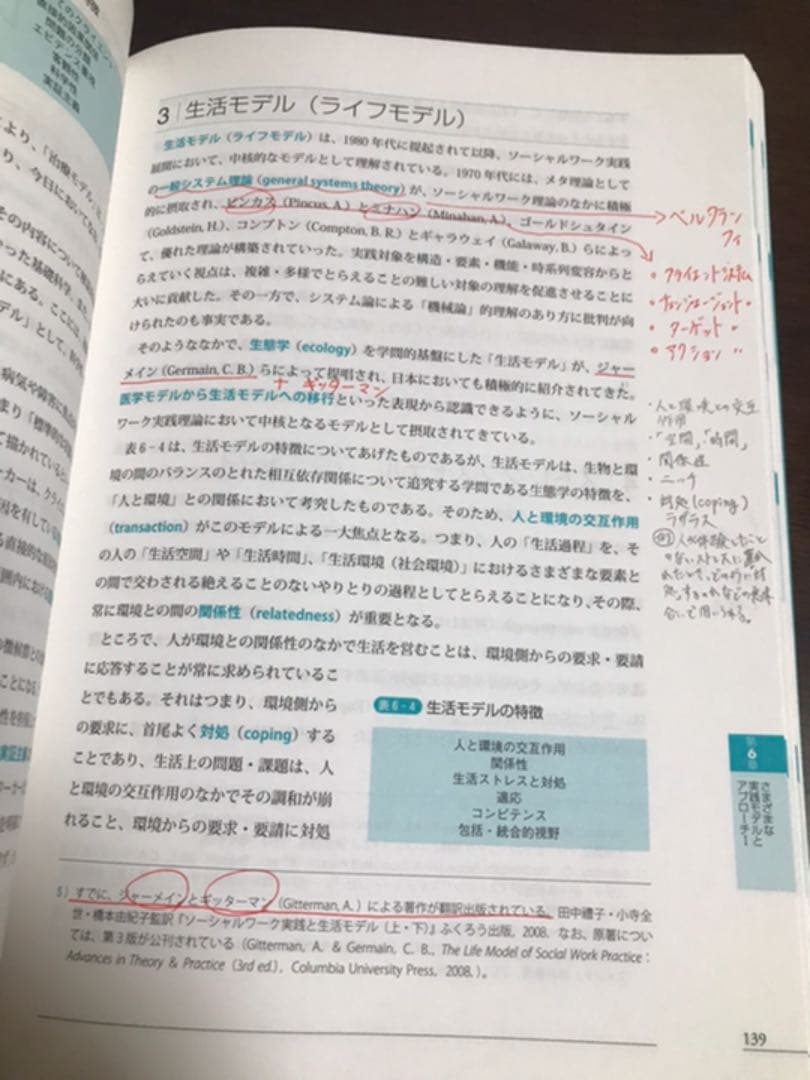 3 生活モデル（ライフモデル）
生活モデル（ライフモデル）は、1980年代に提起されて以降、ソーシャルワーク実践
展開において、中核的なモデルとして理解されている。1970年代には、メタ理論として
の一般システム理論（general systems theory）が、ソーシャルワーク理論のなかに積極
的に摂取され、ピンカス（Pincus, A.）とミナハン（Minahan, A.）、ゴールドシュタイン
（Goldstein, H.）、コンプトン（Compton, B. R.）とギャラウェイ（Galaway, B.）らによっ
て、優れた理論が構築されていった。実践対象を構造・要素・機能・時系列変容からと
らえていく視点は、複雑・多様でとらえることの難しい対象の理解を促進させることに
大いに貢献した。その一方で、システム論による「機械論」的理解のあり方に批判が向
けられたのも事実である。
そのようななかで、生態学（ecology）を学問的基盤にした「生活モデル」が、ジャー
メイン（Germain, C. B.）らによって提唱され、日本においても積極的に紹介されてきた。
ナ ギッターマン
医学モデルから生活モデルへの移行といった表現から認識できるように、ソーシャル
ワーク実践理論において中核となるモデルとして摂取されてきている。
表6-4は、生活モデルの特徴についてあげたものであるが、生活モデルは、生物と環
境の間のバランスのとれた相互依存関係について追究する学問である生態学の特徴を、
「人と環境」との関係において考究したものである。そのため、人と環境の交互作用
（transaction）がこのモデルによる一大焦点となる。つまり、人の「生活過程」を、そ
の人の「生活空間」や「生活時間」、「生活環境（社会環境）」におけるさまざまな要素と
の間で交わされる絶えることのないやりとりの過程としてとらえることになり、その際、
常に環境との間の関係性（relatedness）が重要となる。
ところで、人が環境との関係性のなかで生活を営むことは、環境側からの要求・要請
に応答することが常に求められているこ
とでもある。それはつまり、環境側から
の要求に、首尾よく対処（coping）する
ことであり、生活上の問題・課題は、人
と環境の交互作用のなかでその調和が崩
れること、環境からの要求・要請に対処
表6-4 生活モデルの特徴
人と環境の交互作用
関係性
生活ストレスと対処
適応
コンピテンス
包括・統合的視野
5）すでに、ジャーメインとギッターマン（Gitterman, A.）による著作が翻訳出版されている。田中禮子・小寺全
世・橋本由紀子監訳『ソーシャルワーク実践と生活モデル（上・下）』ふくろう出版，2008. なお、原著につい
ては、第3版が公刊されている（Gitterman, A. & Germain, C. B., The Life Model of Social Work Practice :
Advances in Theory & Practice (3rd ed.), Columbia University Press, 2008.）。
139
第6章
さまざまな
実践モデルと
アプローチI
ベルタラン
フィ
・クライエントシステム
・チェンジエージェント 〃
・ターゲット 〃
・アクション 〃
・人と環境との交互
作用
・「空間」、「時間」
・関係性
・ニッチ
・対処(coping)
ラザラス